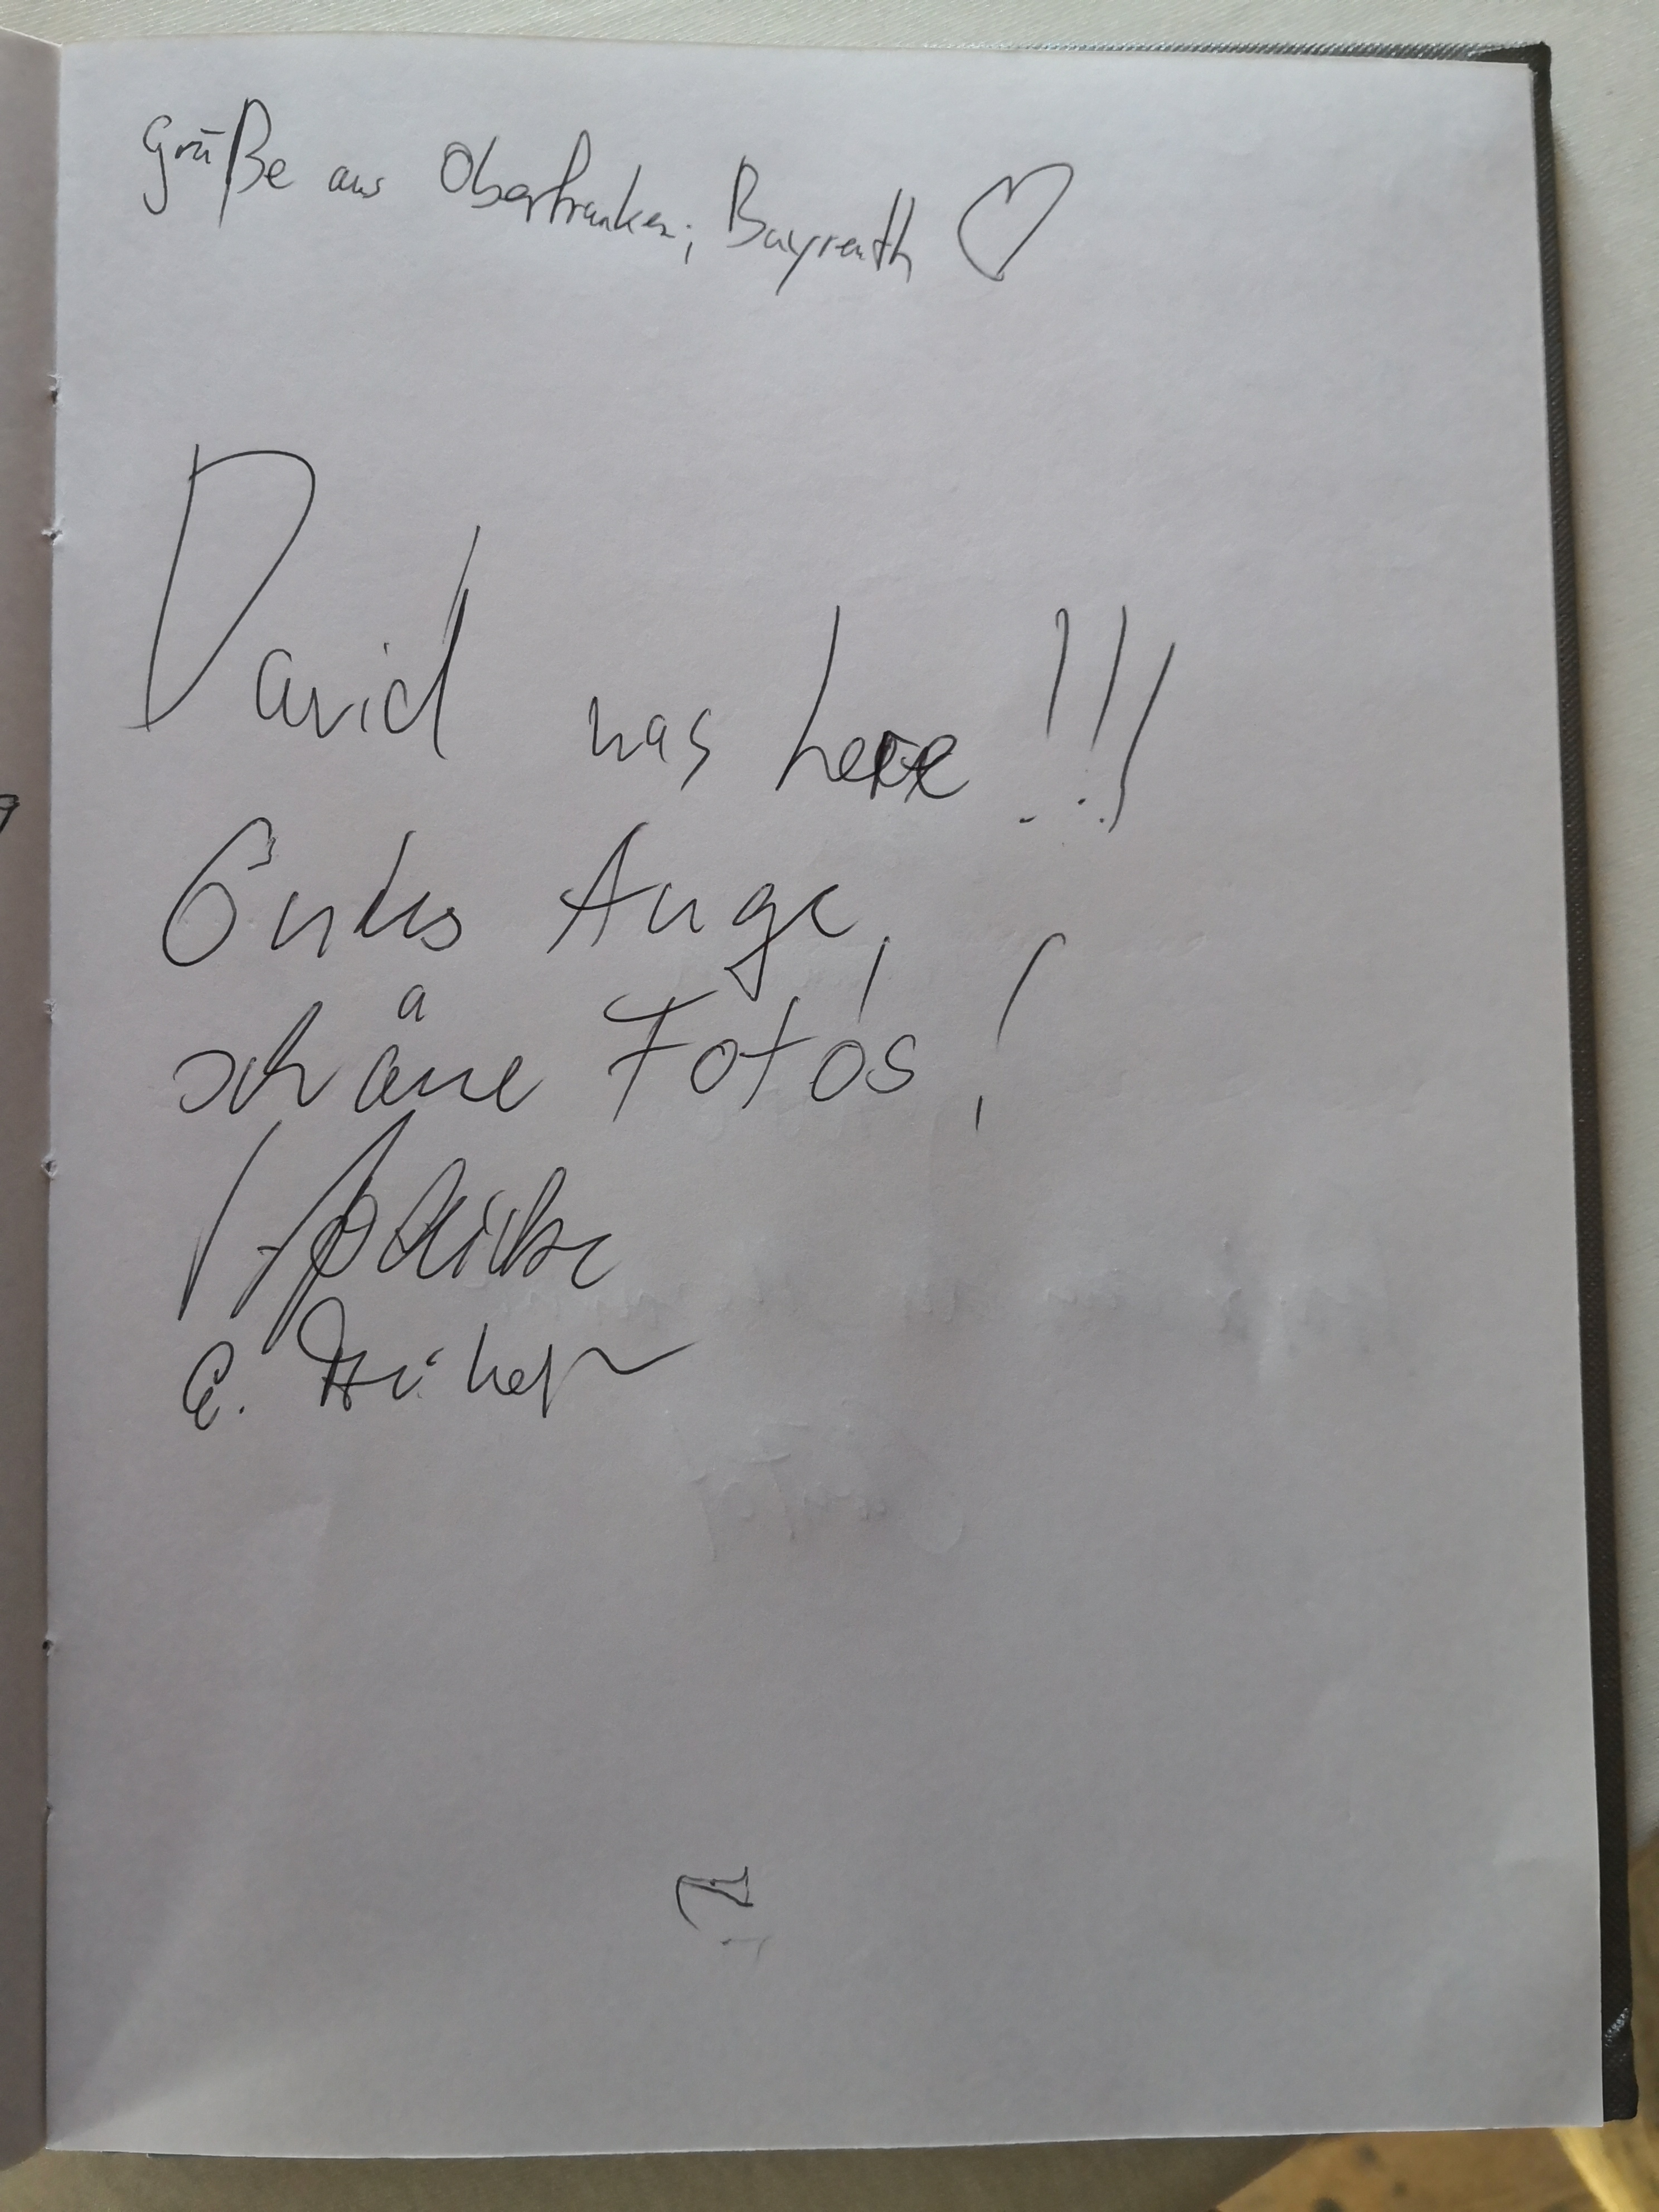 Grüße aus Oberfranken, Bayreuth ♡
David was here!!!
Gutes Auge,
schöne Foto's!
E.